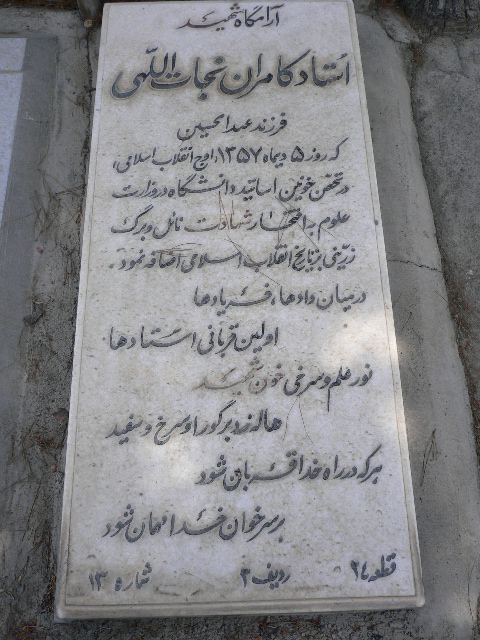 آرامگاه شهید
استاد کامران نجات اللّهی
فرزند عبدالحسین
که روز ۵ دیماه ۱۳۵۷، اوج انقلاب اسلامی،
در تحصن خونین اساتید دانشگاه در وزارت
علوم به افتخار شهادت نائل و برگ
زرّینی بر تاریخ انقلاب اسلامی اضافه نمود.
در میان دادها، فریادها
اولین قربانی استادها
نور علم و سرخی خون شهید
هاله زد بر گور او سرخ و سفید
هر که در راه خدا قربان شود
بر سر خوان خدا مهمان شود
قطعه ۲۴ ردیف ۲ شماره ۱۳